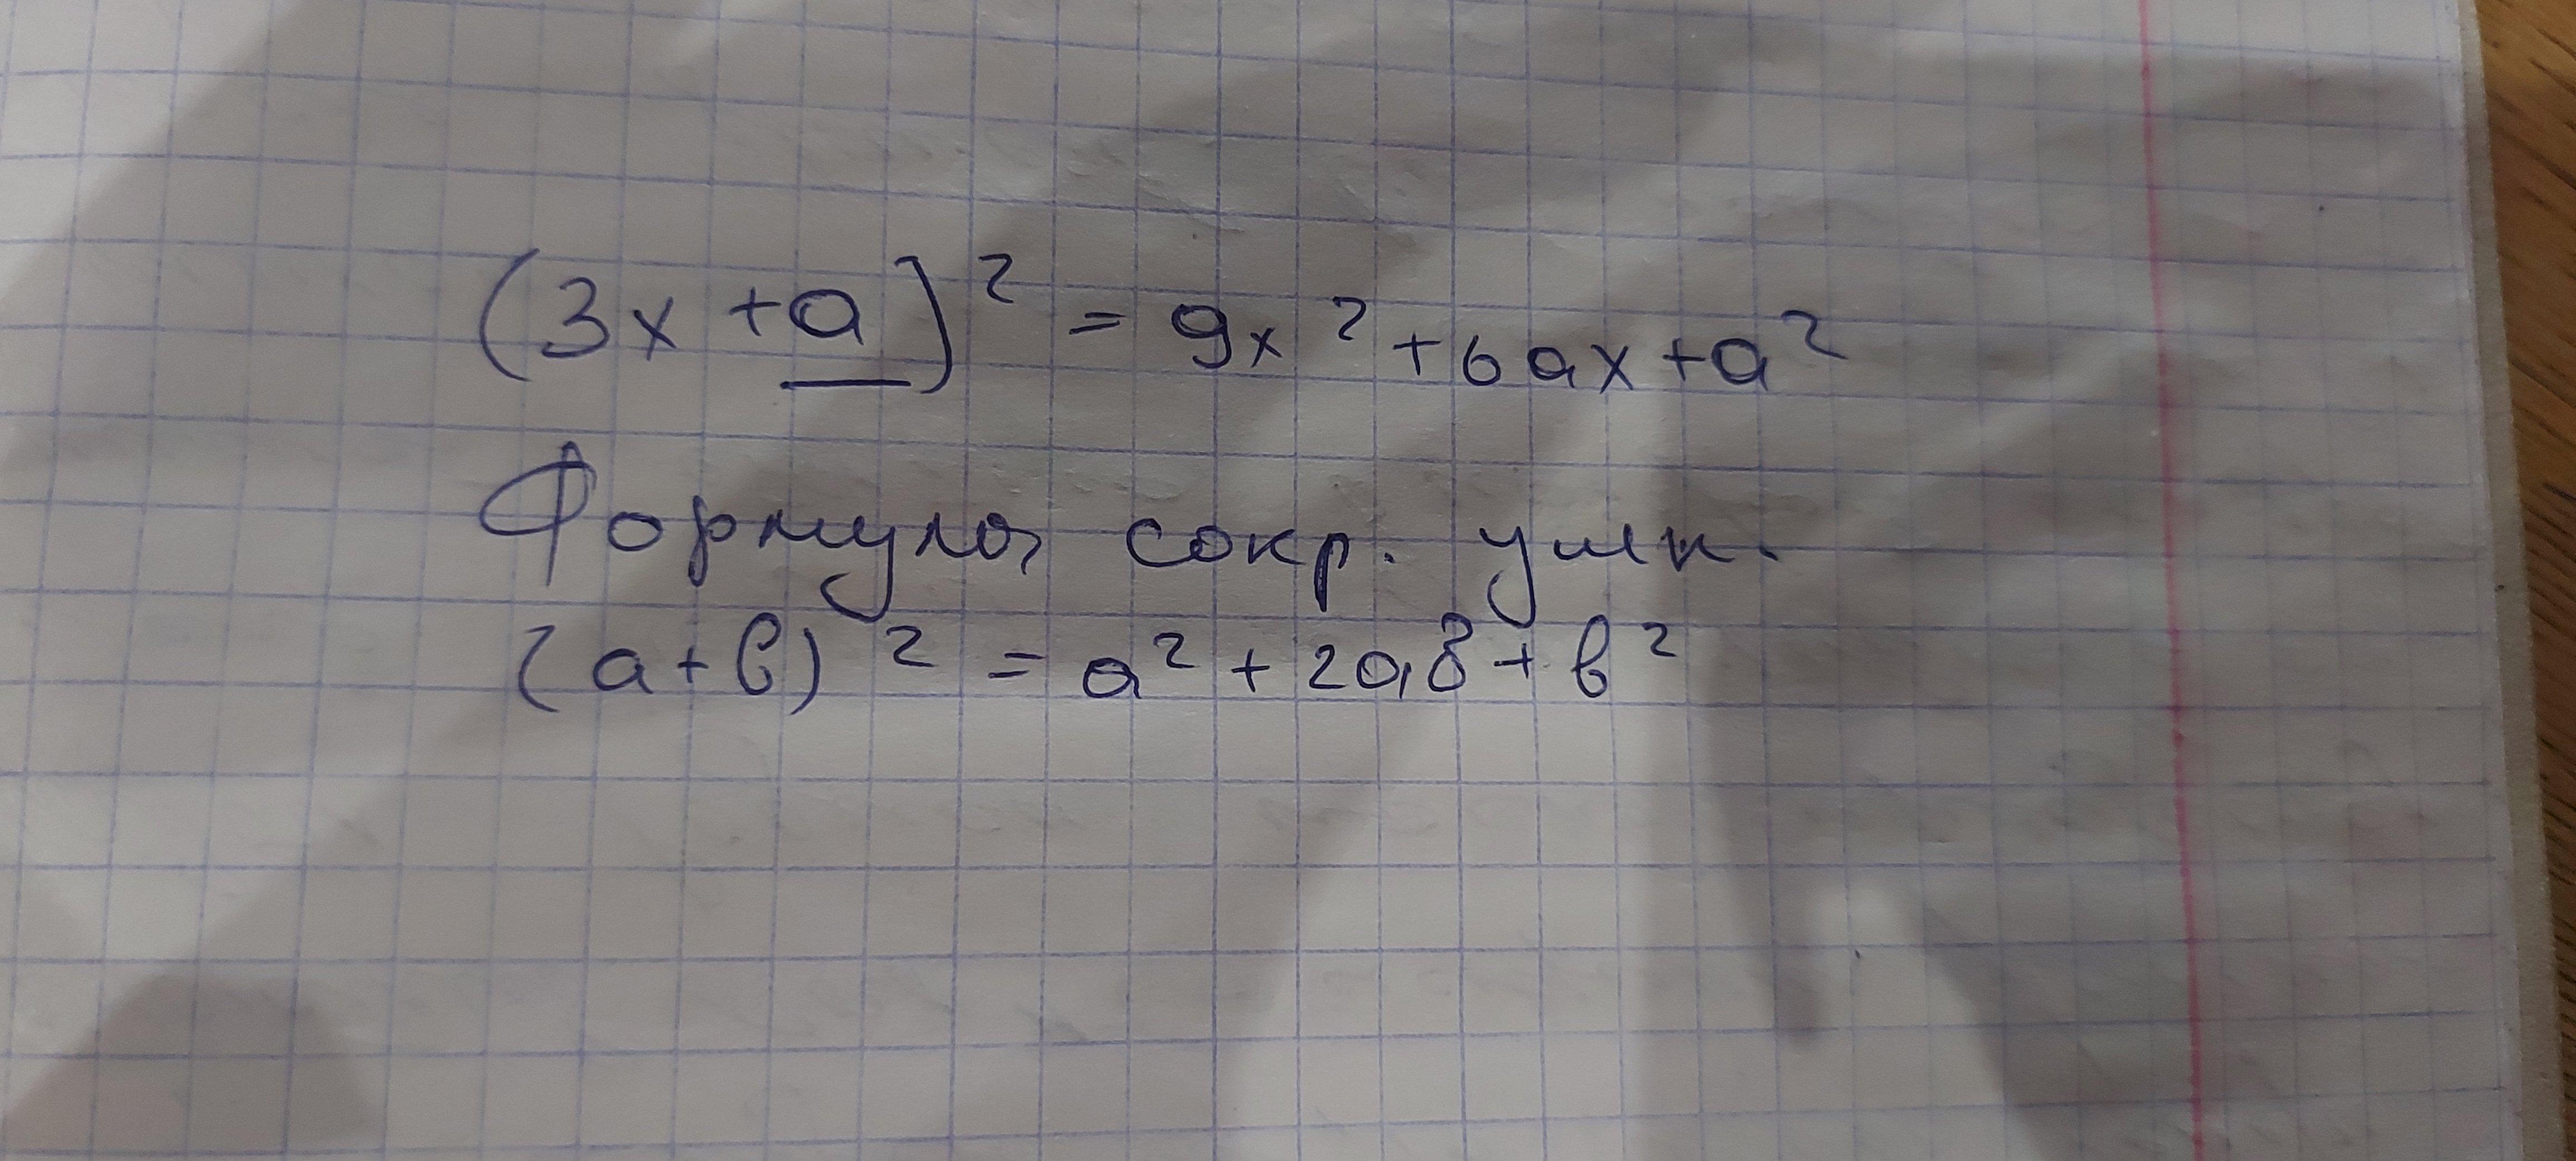 (3x + a)² = 9x² + 6ax + a²
Формула сокр. умн.
(a + b)² = a² + 2ab + b²